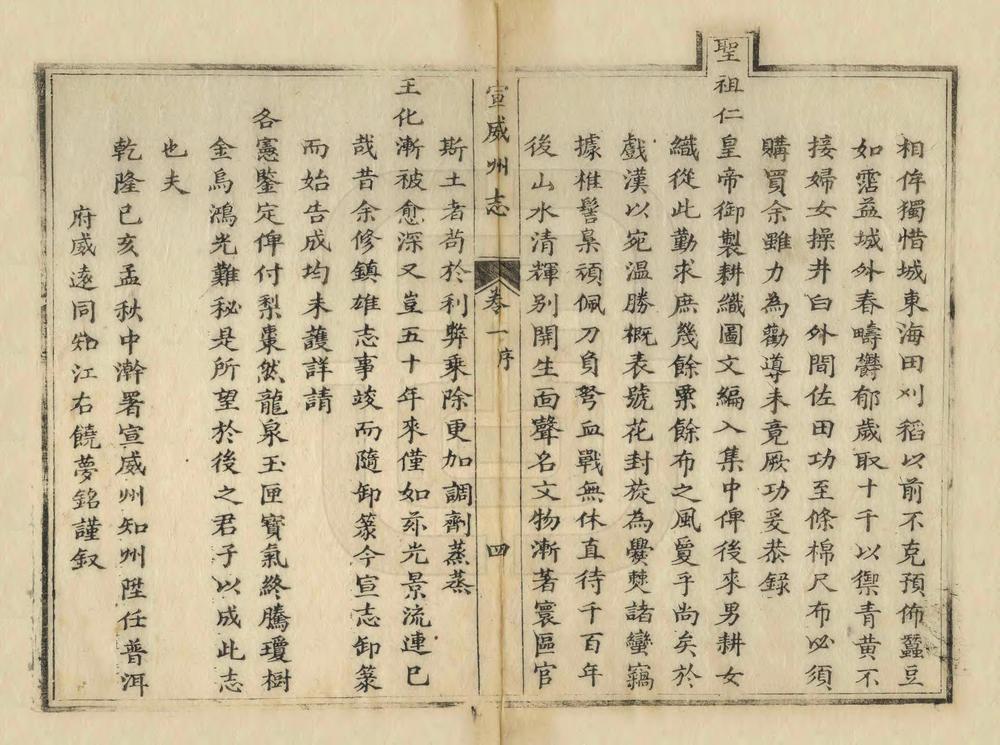 相侔獨惜城東海田刈稻以前不克預佈蠶豆
如霑益城外春疇鬱郁歲取十千以禦青黃不
接婦女操井臼外間佐田功至條棉尺布必須
購買余雖力為勸導未竟厥功爰恭錄
聖祖仁皇帝御製耕織圖文編入集中俾後來男耕女
織從此勤求庶幾餘粟餘布之風戛乎尚矣於
戲漢以宛溫勝概表號花封旋為爨僰諸蠻竊
據椎髻梟頑佩刀負弩血戰無休直待千百年
後山水清輝別開生面聲名文物漸著寰區官
宣威州志 卷一 序 四
斯土者苟於利弊乘除更加調劑蒸蒸
王化漸被愈深又豈五十年來僅如茲光景流連已
哉昔余修鎮雄志事竣而隨卸篆今宣志卸篆
而始告成均未護詳請
各憲鑒定俾付梨棗然龍泉玉匣寶氣終騰瓊樹
金烏鴻光難秘是所望於後之君子以成此志
也夫
乾隆己亥孟秋中澣署宣威州知州陞任普洱
府威遠同知江右饒夢銘謹叙